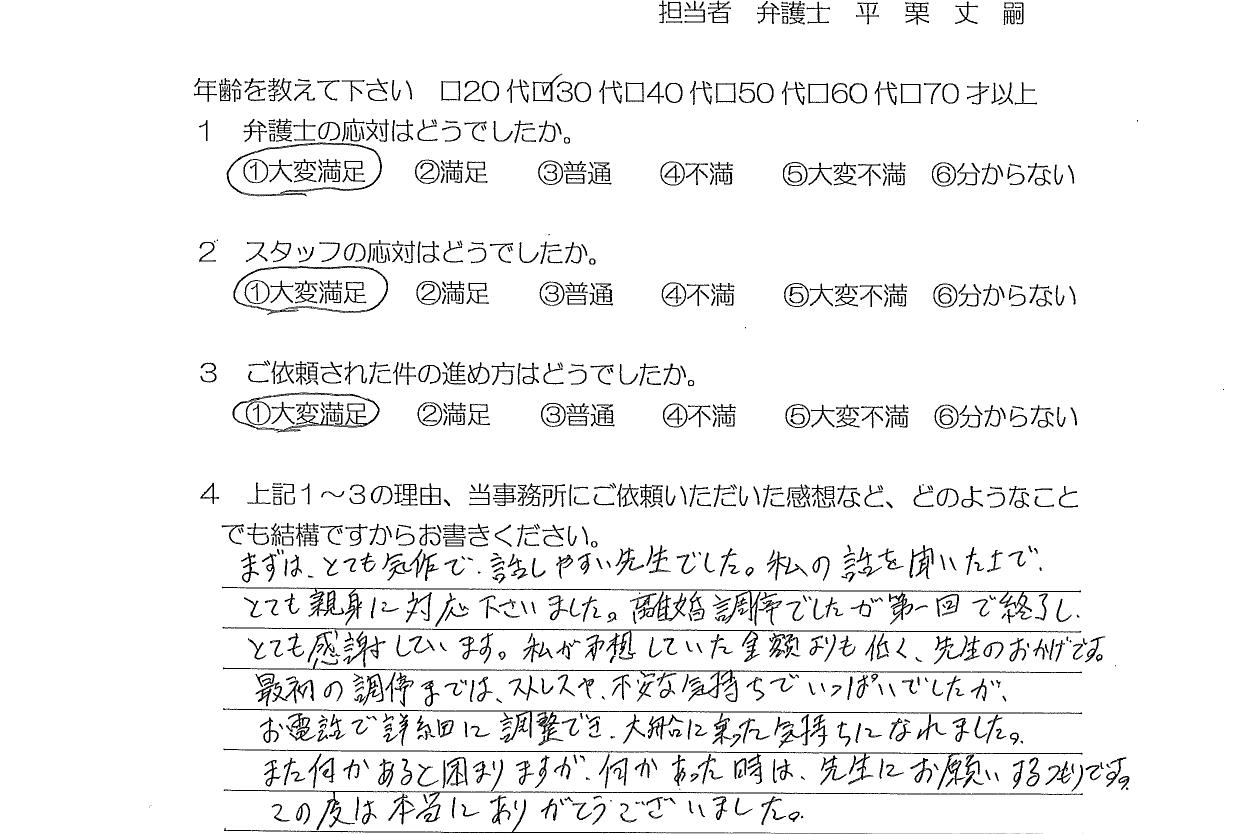 担当者 弁護士 平 栗 丈 嗣
年齢を教えて下さい □20代☑30代□40代□50代□60代□70才以上
１ 弁護士の応対はどうでしたか。
①大変満足 ②満足 ③普通 ④不満 ⑤大変不満 ⑥分からない
２ スタッフの応対はどうでしたか。
①大変満足 ②満足 ③普通 ④不満 ⑤大変不満 ⑥分からない
３ ご依頼された件の進め方はどうでしたか。
①大変満足 ②満足 ③普通 ④不満 ⑤大変不満 ⑥分からない
４ 上記１～３の理由、当事務所にご依頼いただいた感想など、どのようなこと
でも結構ですからお書きください。
まずは、とても気作で、話しやすい先生でした。私の話を聞いた上で、
とても親身に対応下さいました。離婚調停でしたが第一回で終了し、
とても感謝しています。私が予想していた金額よりも低く、先生のおかげです。
最初の調停までは、ストレスや、不安な気持ちでいっぱいでしたが、
お電話で詳細に調整でき、大船に乗った気持ちになれました。
また何かあると困りますが、何かあった時は、先生にお願いするつもりです。
この度は本当にありがとうございました。